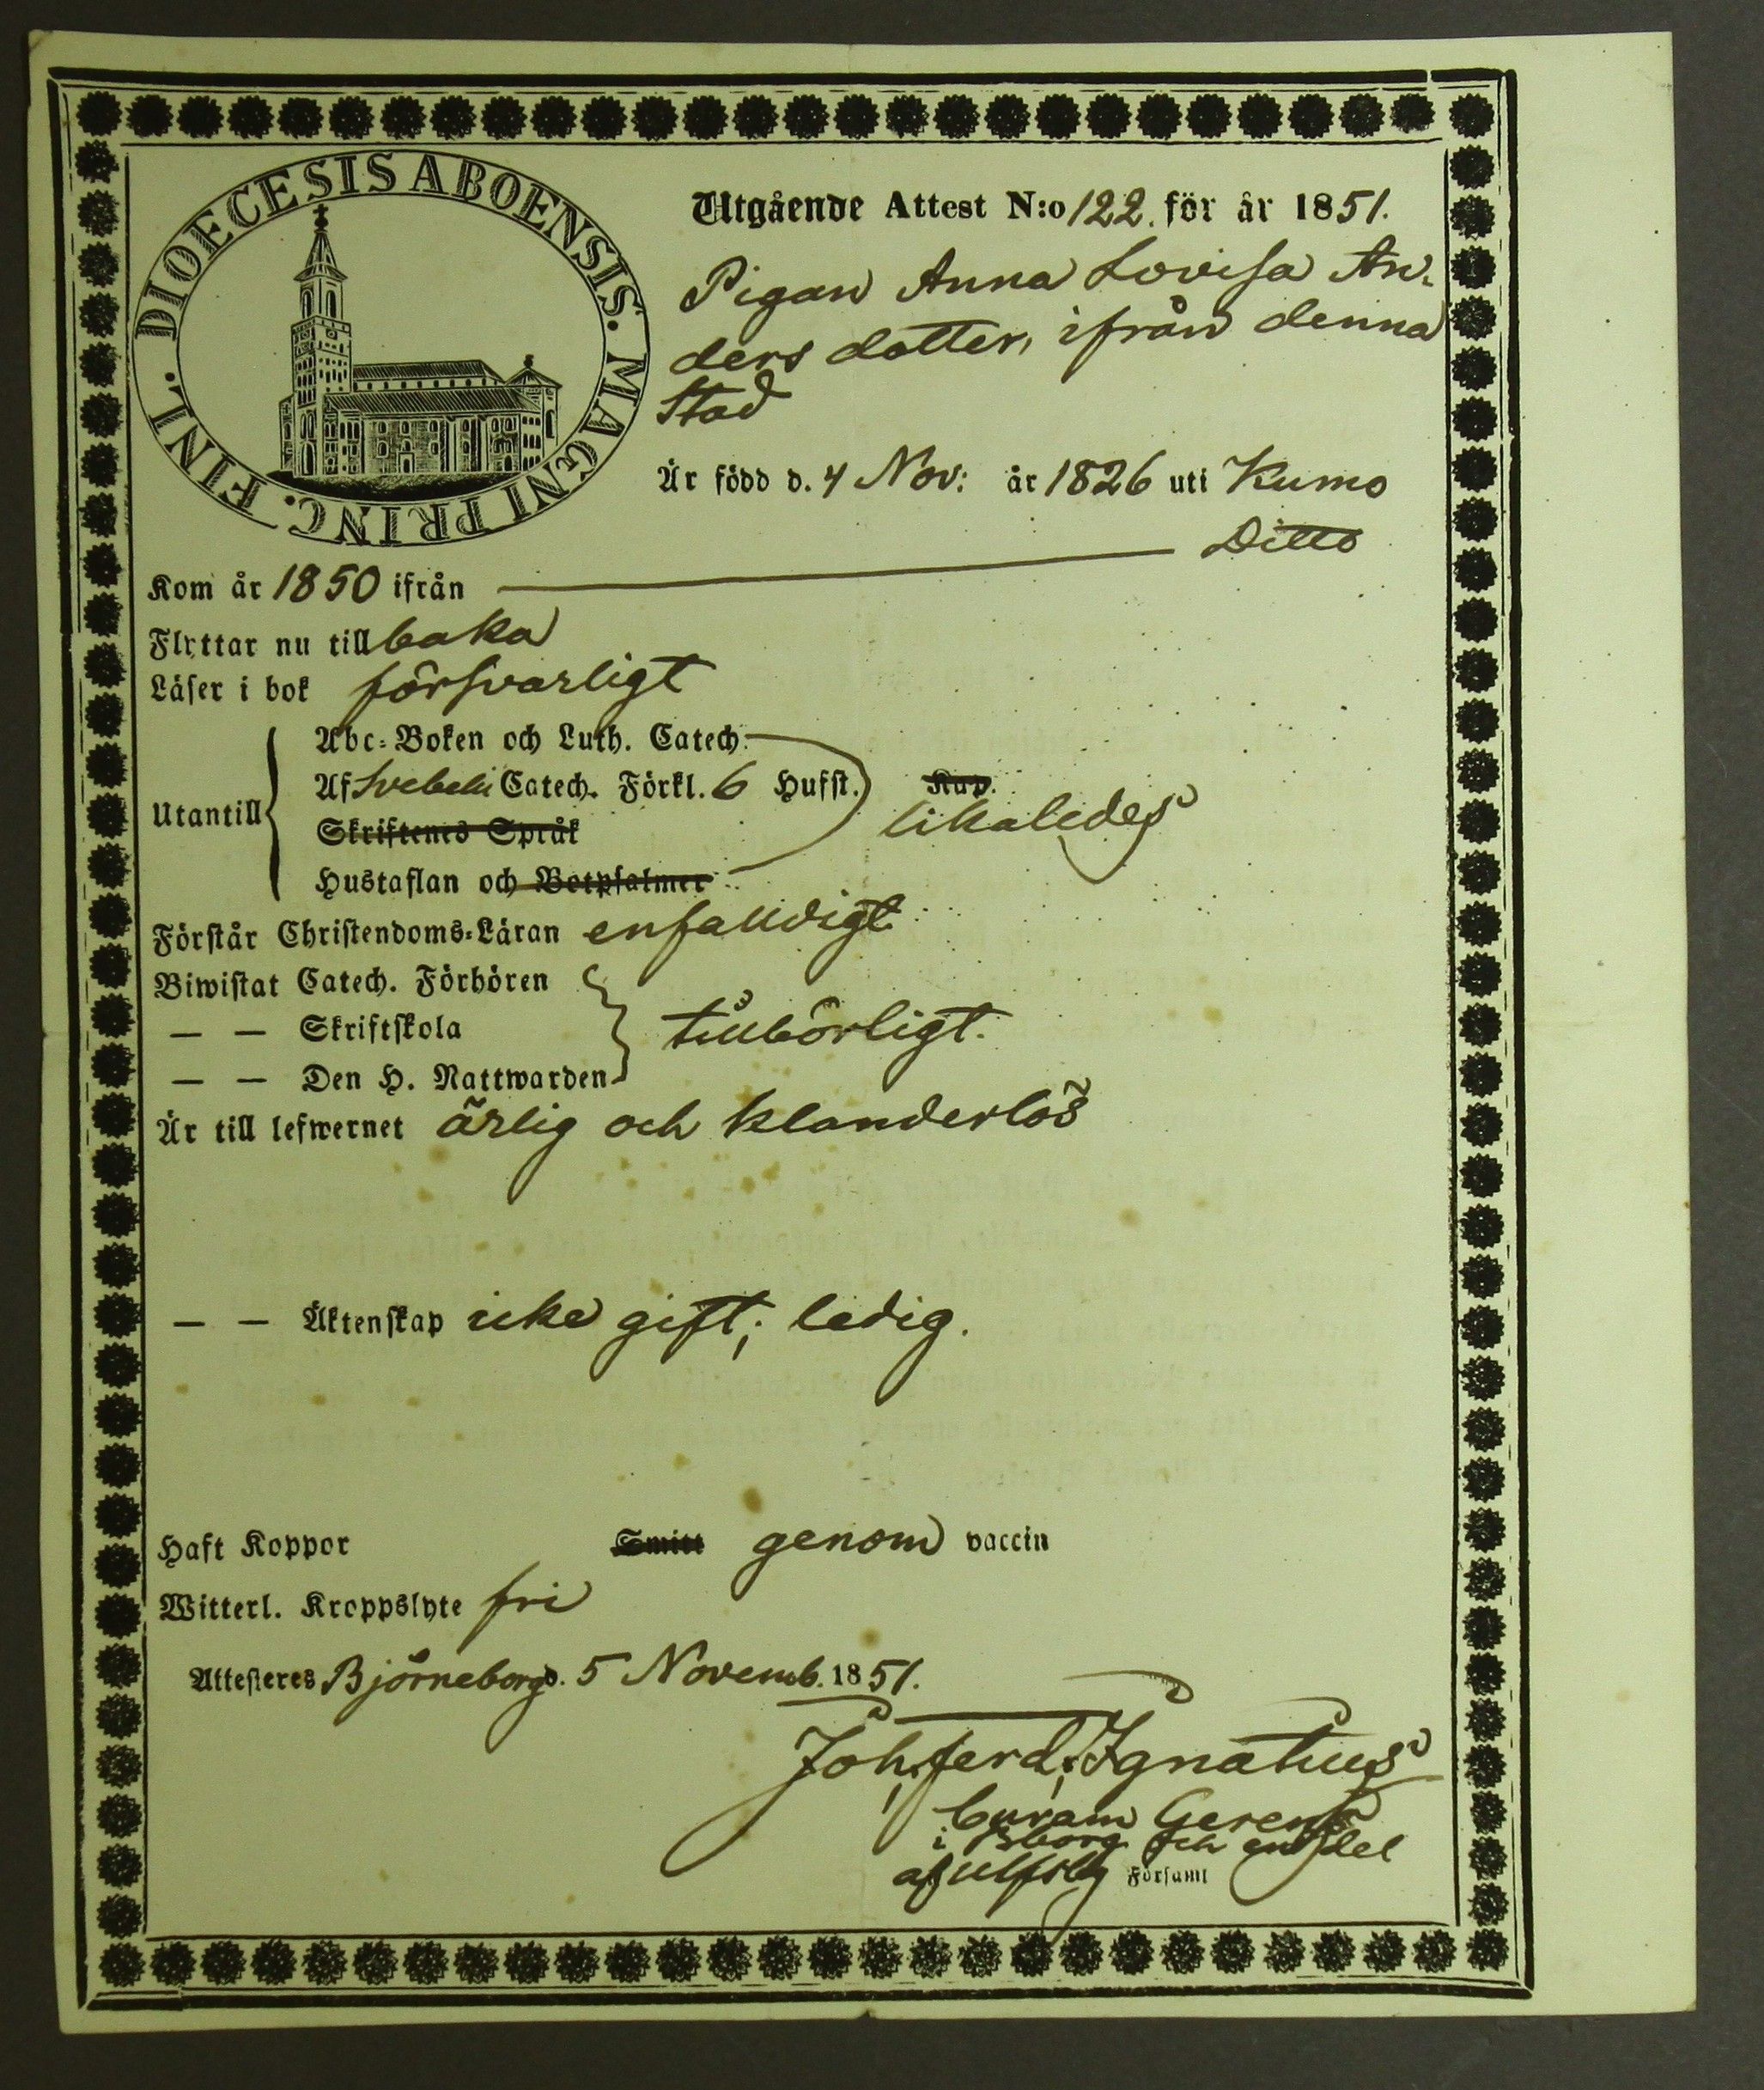 DIOECESIS ABOENSIS. MAGNI PRINC. FINL.
Utgående Attest N:o 122. för år 1851.
Pigan Anna Lovisa An-
ders dotter, ifrån denna
Stad
Är född d. 4 Nov: år 1826 uti Kumo
Kom år 1850 ifrån Ditto
Flyttar nu till baka
Läser i bok försvarligt
Utantill
Abc-Boken och Luth. Catech.
Af Svebelii Catech. Förkl. 6 Hufst. Kap.
likaledes
Skriftenes Språk
Hustaflan och Botpsalmer
Förstår Christendoms-Läran enfaldigt
Biwistat Catech. Förhören
— — Skriftskola tillbörligt.
— — Den H. Nattwarden
Är till lefwernet ärlig och klanderlös
— — Äktenskap icke gift; ledig.
Haft Koppor Smitt genom vaccin
Witterl. Kroppslyte fri
Attesteres Björneborg d. 5 Novemb. 1851.
Joh. Ferd. Ignatius
Curam Gerens
i Bborg och en del
af Ulfsby Församl